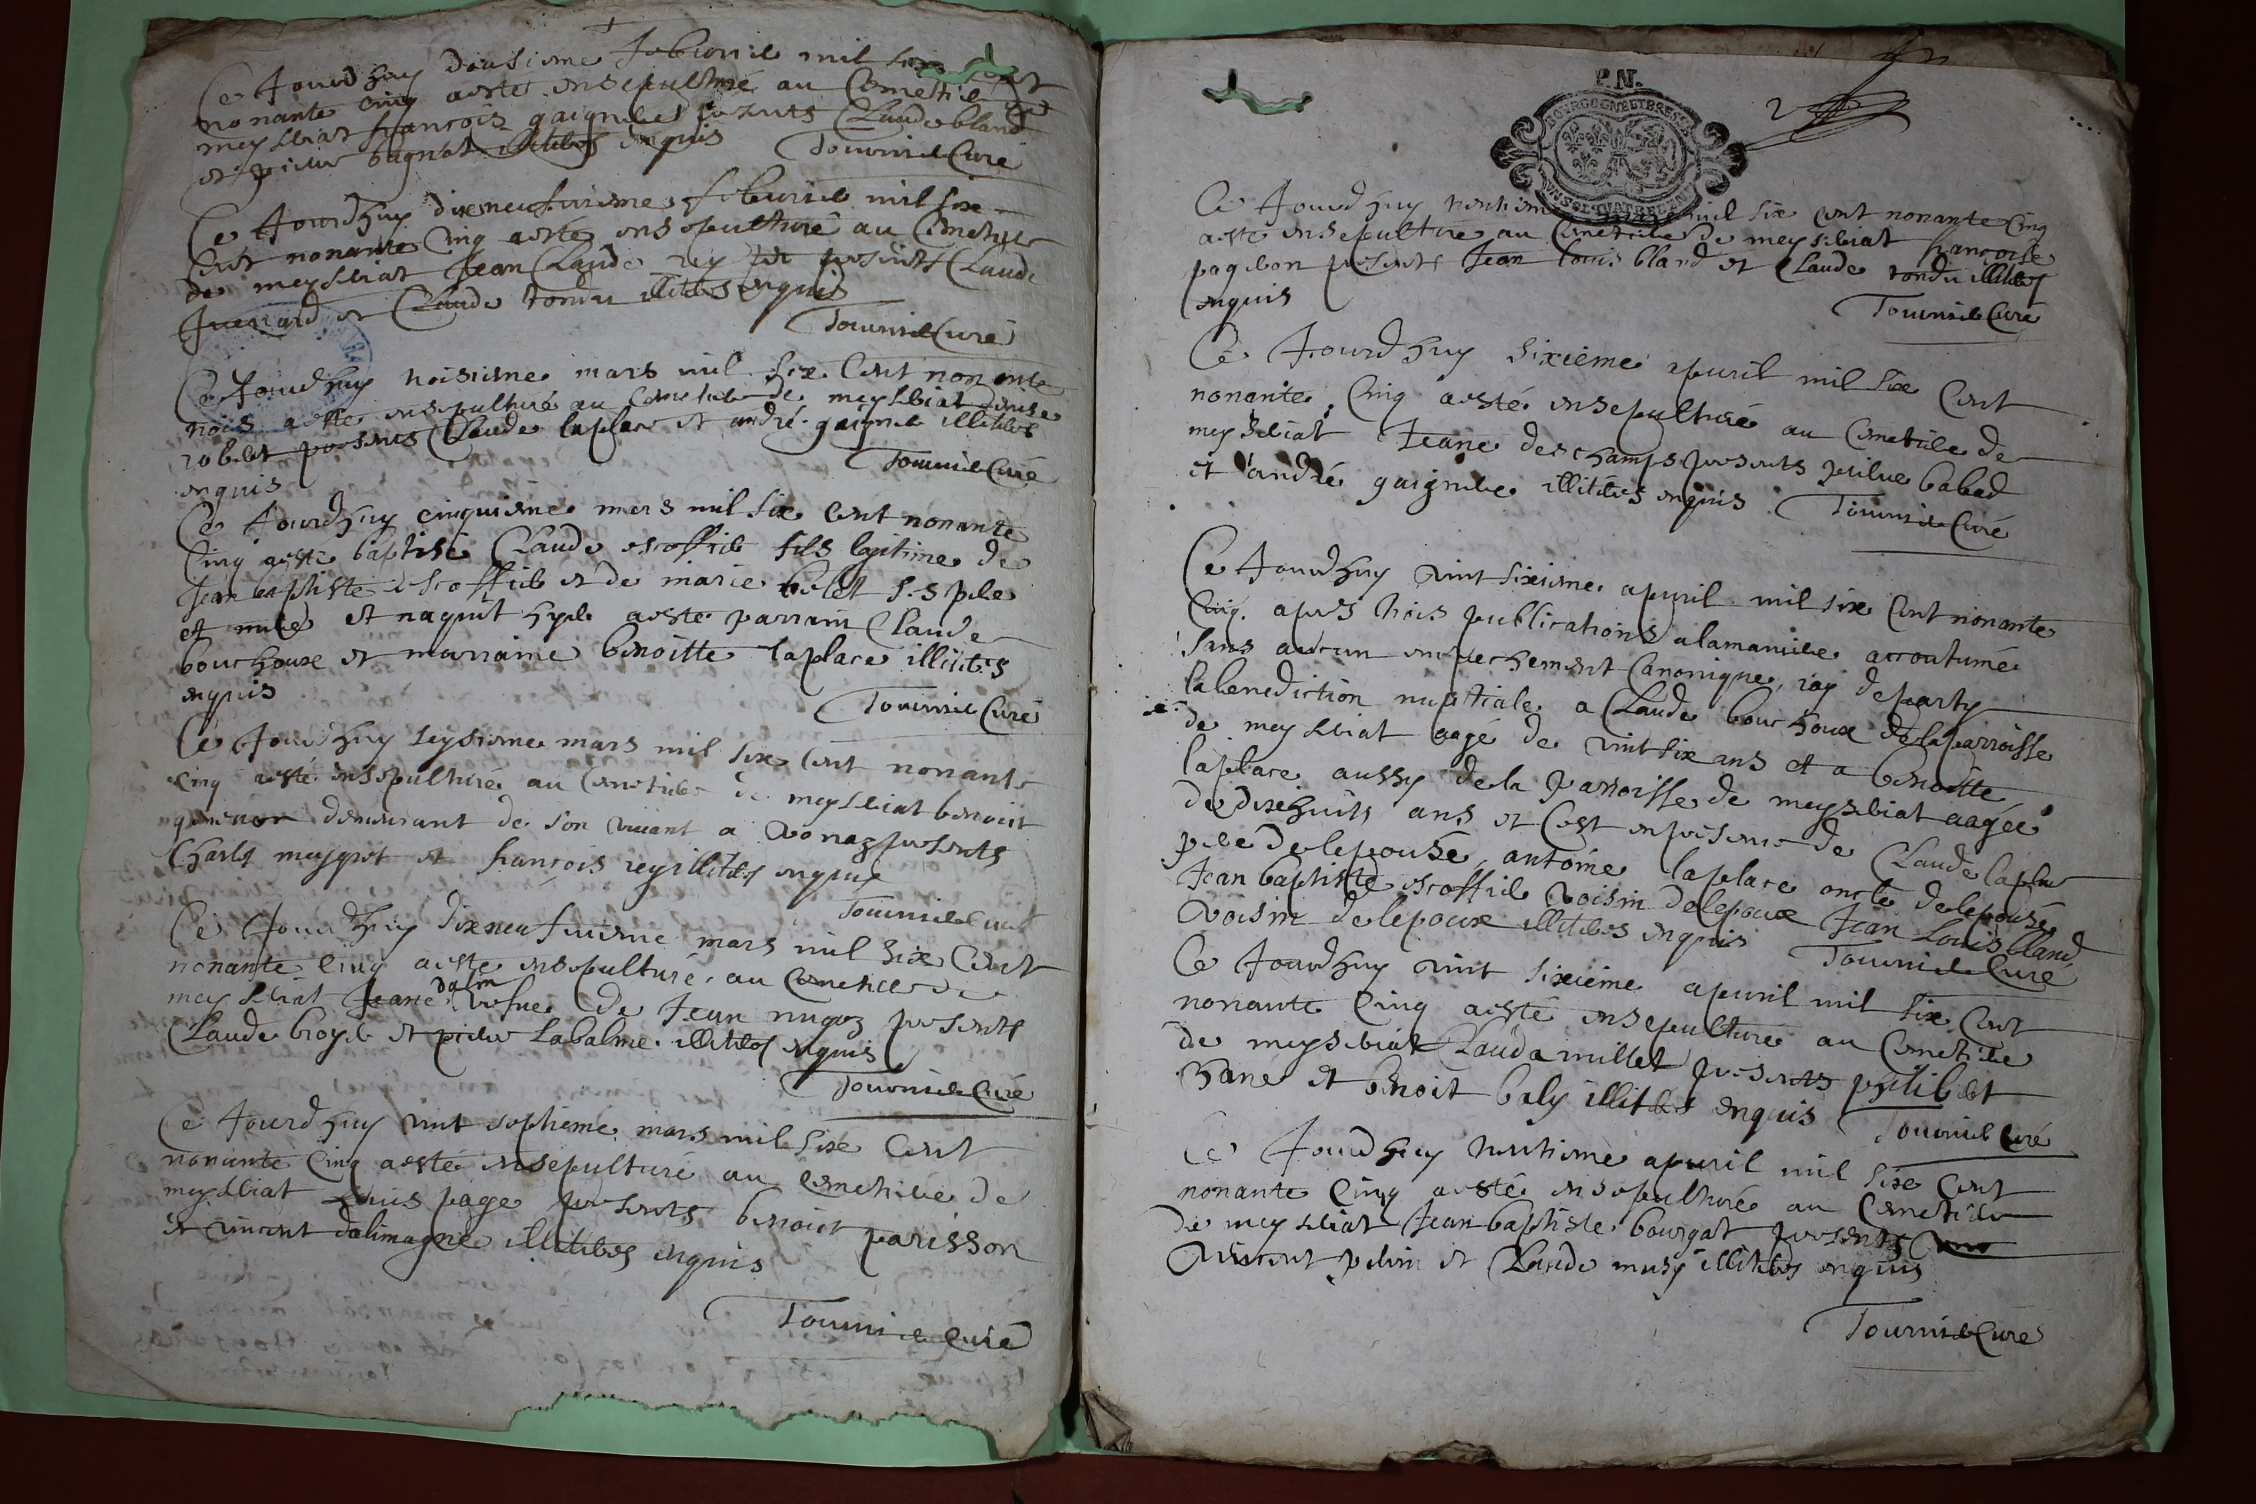 Ce Jourdhuy dousieme febvrie mil six cent
nonante cinq aesté ensepulturé au Cimetiere de
meyssiat françois gaignebe presents Claude bland
et pierre bagnat illiteres enquis Tournie Curé
Ce Jourdhuy dixneufvieme febvrie mil six
Cent nonante Cinq aesté ensepulturé au Cimetiere
de meyssiat Jean Claude rey presents Claude
Juenard et Claude tondu illiteres enquis
Tournie Curé
Ce Jourdhuy troisieme mars mil six Cent nonante
trois aesté ensepulturé au Cimetiere de meyssiat denise
robelet presents Claude laplace et andré gaigneb illiteres
enquis Tournie Curé
Ce Jourdhuy cinquieme mars mil six Cent nonante
Cinq aesté baptisé Claude escoffie fils legitime de
Jean baptiste escoffie et de marie belet ses pere
et mere et naquit hyer aesté parrain Claude
bouchoux et marraine benoitte laplace illiteres
enquis Tournie Curé
Ce Jourdhuy seysieme mars mil six Cent nonante
cinq aesté ensepulturé au Cimetiere de meyssiat benoit
demeurant de son vivant a vonaz presents
Charles meygret et françois rey illiteres enquis
Tournie Curé
Ce Jourdhuy dixneufvieme mars mil six Cent
nonante Cinq aesté ensepulturé au Cimetiere de
meyssiat Jeane dalin vefue de Jean nugoz presents
Claude broye et pierre Labalme illiteres enquis
Tournie Curé
Ce Jourdhuy vint septieme mars mil six Cent
nonante Cinq aesté ensepulturé au Cimetiere de
meyssiat Louis page presents benoit parisson
et vincent dalimagne illiteres enquis
Tournie Curé
P.N.
BOURGOGNE ET BRESSE
UN SOL QUATRE DEN
2
Ce Jourdhuy trentieme mars mil six cent nonante Cinq
aesté ensepulturé au Cimetiere de meyssiat françoise
pageon presents Jean louis bland et Claude tondu illiteres
enquis
Tournie Curé
Ce Jourdhuy sixieme apuril mil six Cent
nonante Cinq aesté ensepulturé au Cimetiere de
meyssiat Jeane deschamps presents pierre babad
et andré gaignebe illiteres enquis Tournie Curé
Ce Jourdhuy vint sixieme apuril mil six Cent nonante
Cinq apres trois publications a la maniere accoutumé
sans aucun empechement Canonique, iay departy
la benediction nuptiale a Claude bouchoux de la parroisse
de meyssiat aagé de vint six ans et a benoitte
laplace aussy de la parroisse de meyssiat aagée
de dixhuits ans et c'est en presence de Claude laplace
pere de lepouse, antoine laplace oncle de lepouse
Jean baptiste escoffie voisin de lepoux Jean Louis bland
voisin de lepoux illiteres enquis Tournie Curé
Ce Jourdhuy vint sixieme apuril mil six Cent
nonante Cinq aesté ensepulturé au Cimetiere
de meyssiat Clauda millet presents philibert
et benoit baly illiteres enquis Tournie Curé
Ce Jourdhuy trentieme apuril mil six Cent
nonante Cinq aesté ensepulturé au Cimetiere
de meyssiat Jean baptiste bourgat presents
vincent pelin et Claude musy illiteres enquis
Tournie Curé